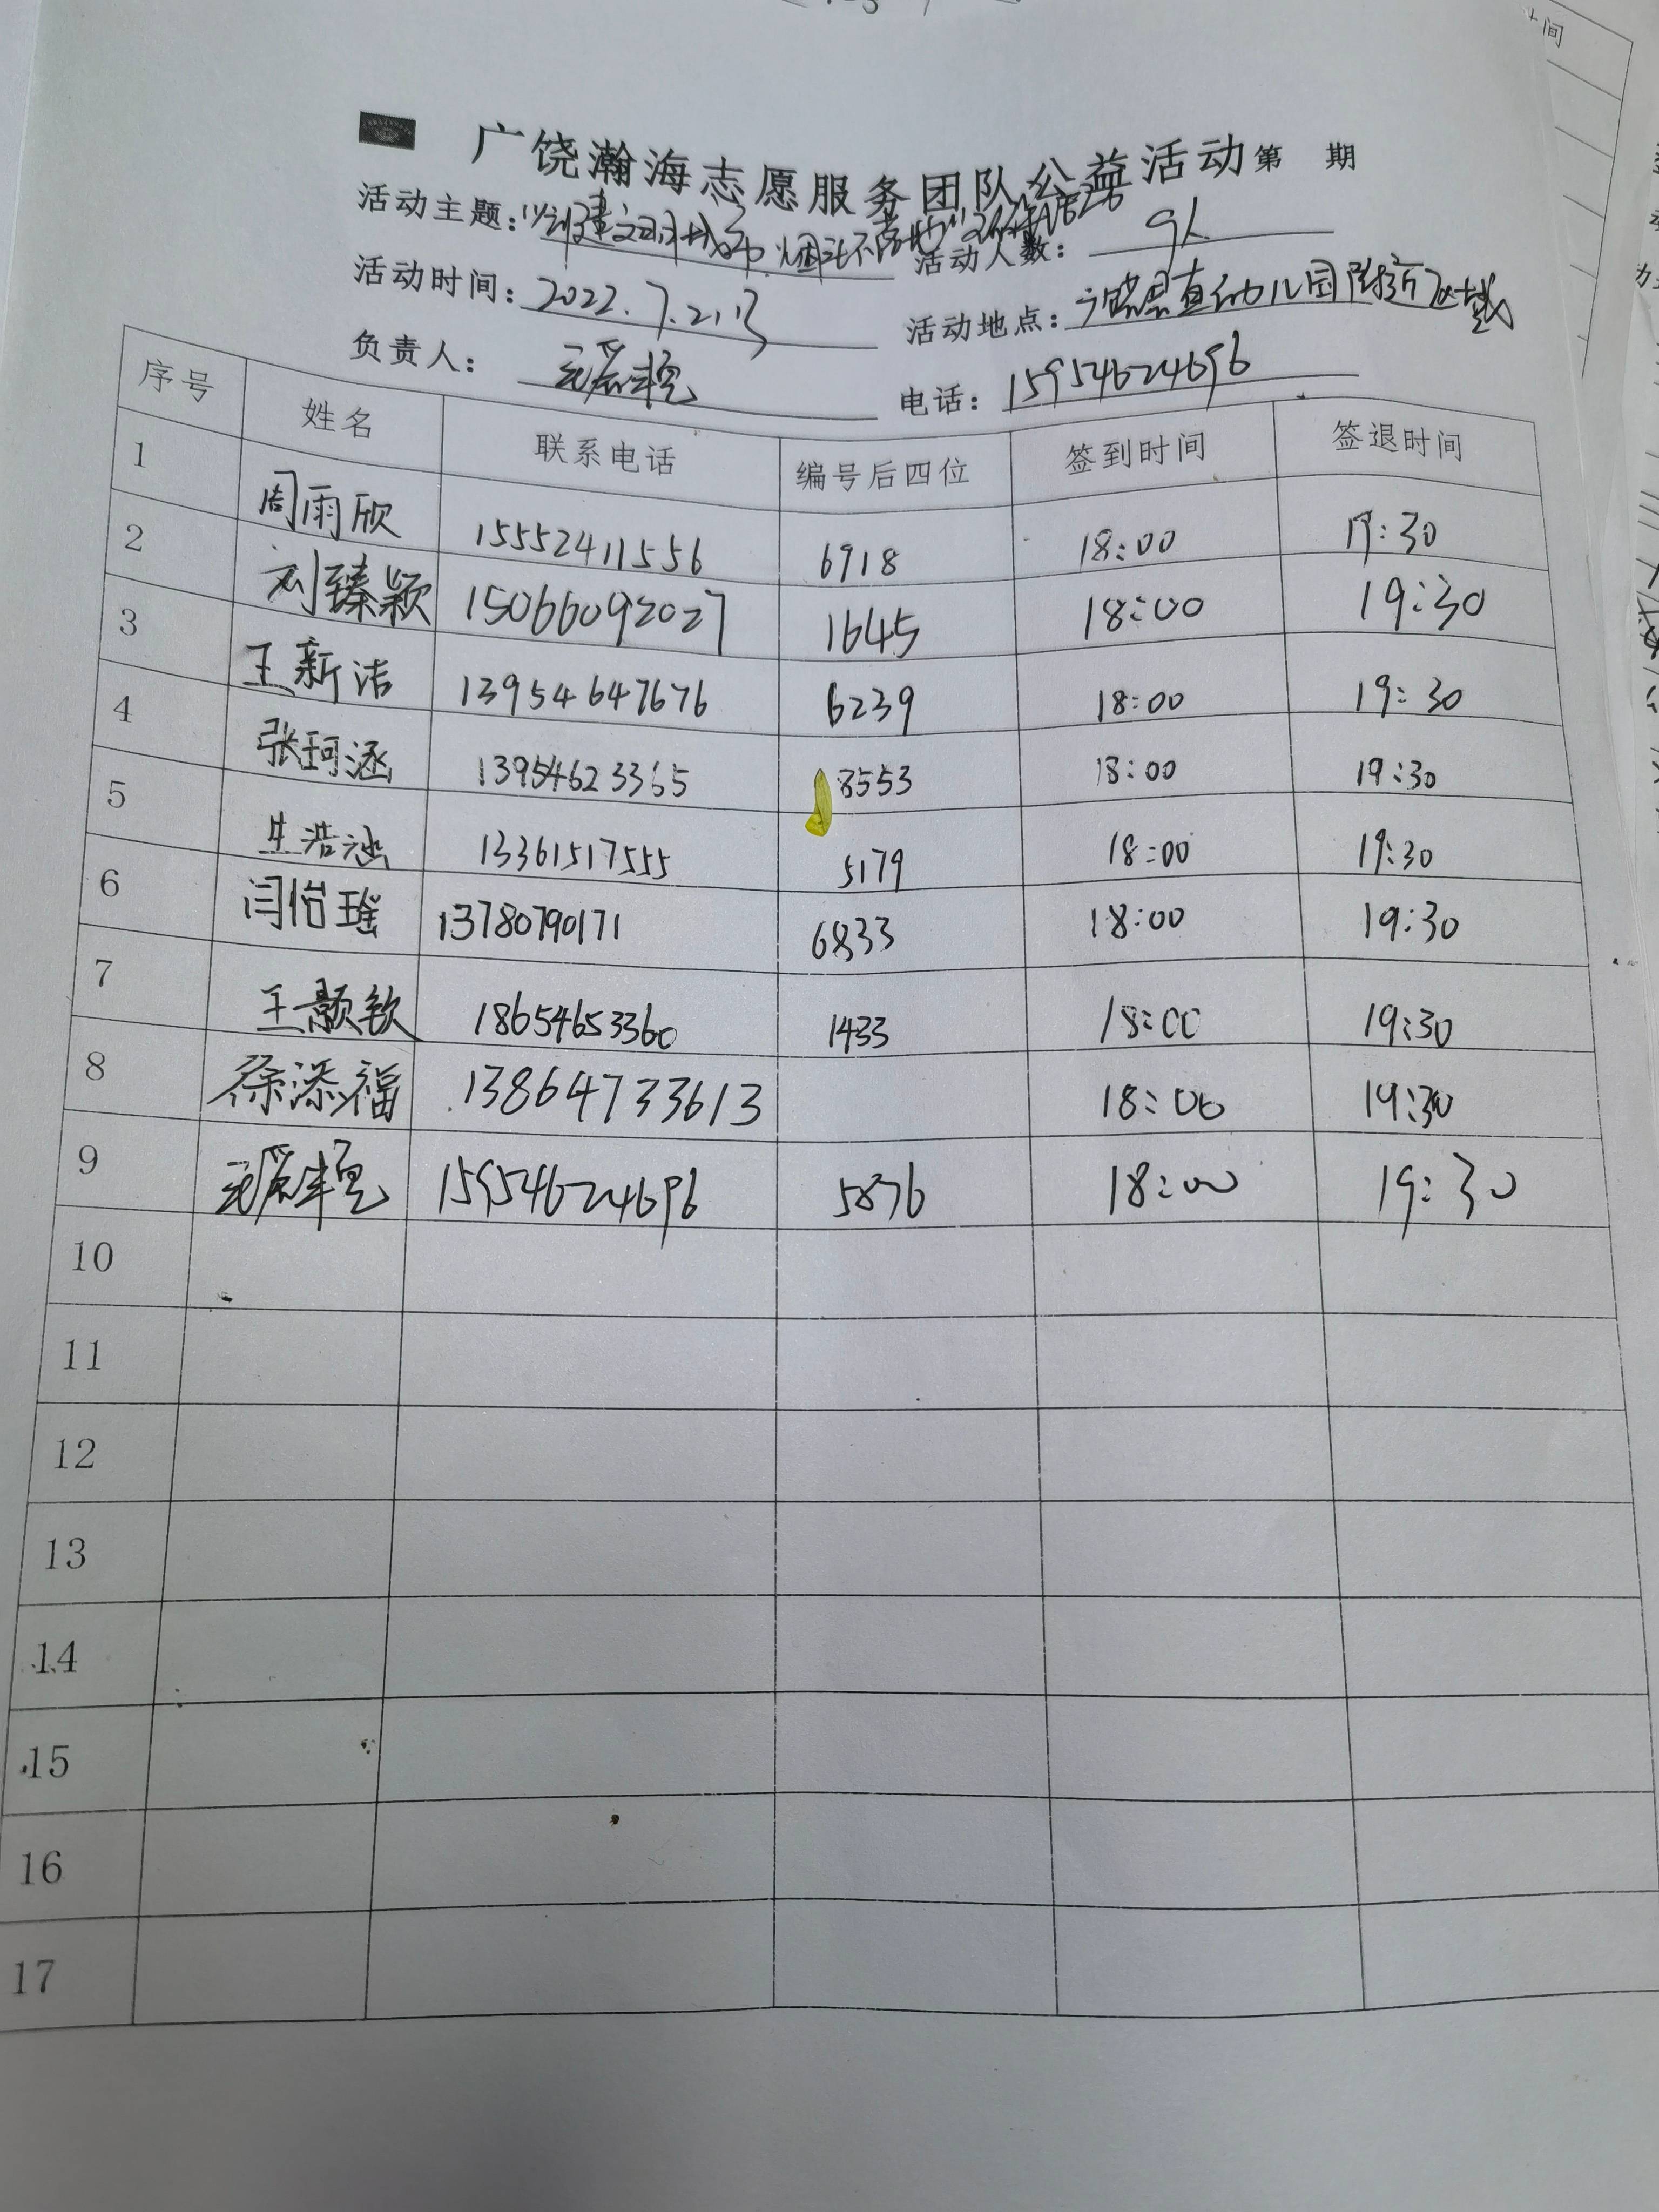 广饶瀚海志愿服务团队公益活动第 期
活动主题："创建文明城市，烟头不落地"公益活动 活动人数：9人
活动时间：2022.7.21 活动地点：广饶县直幼儿园附近区域
负责人： 电话：15954624696
序号 姓名 联系电话 编号后四位 签到时间 签退时间
1 周雨欣 15552411556 6918 18:00 19:30
2 刘臻颖 15066092027 1645 18:00 19:30
3 王新洁 13954647676 6239 18:00 19:30
4 张珂涵 13954623365 8553 18:00 19:30
5 牛浩涵 13361517555 5179 18:00 19:30
6 闫怡瑶 13780790171 6833 18:00 19:30
7 王颢钦 18654653360 1433 18:00 19:30
8 徐添福 13864733613 18:00 19:30
9 15954624696 5876 18:00 19:30
10
11
12
13
14
15
16
17